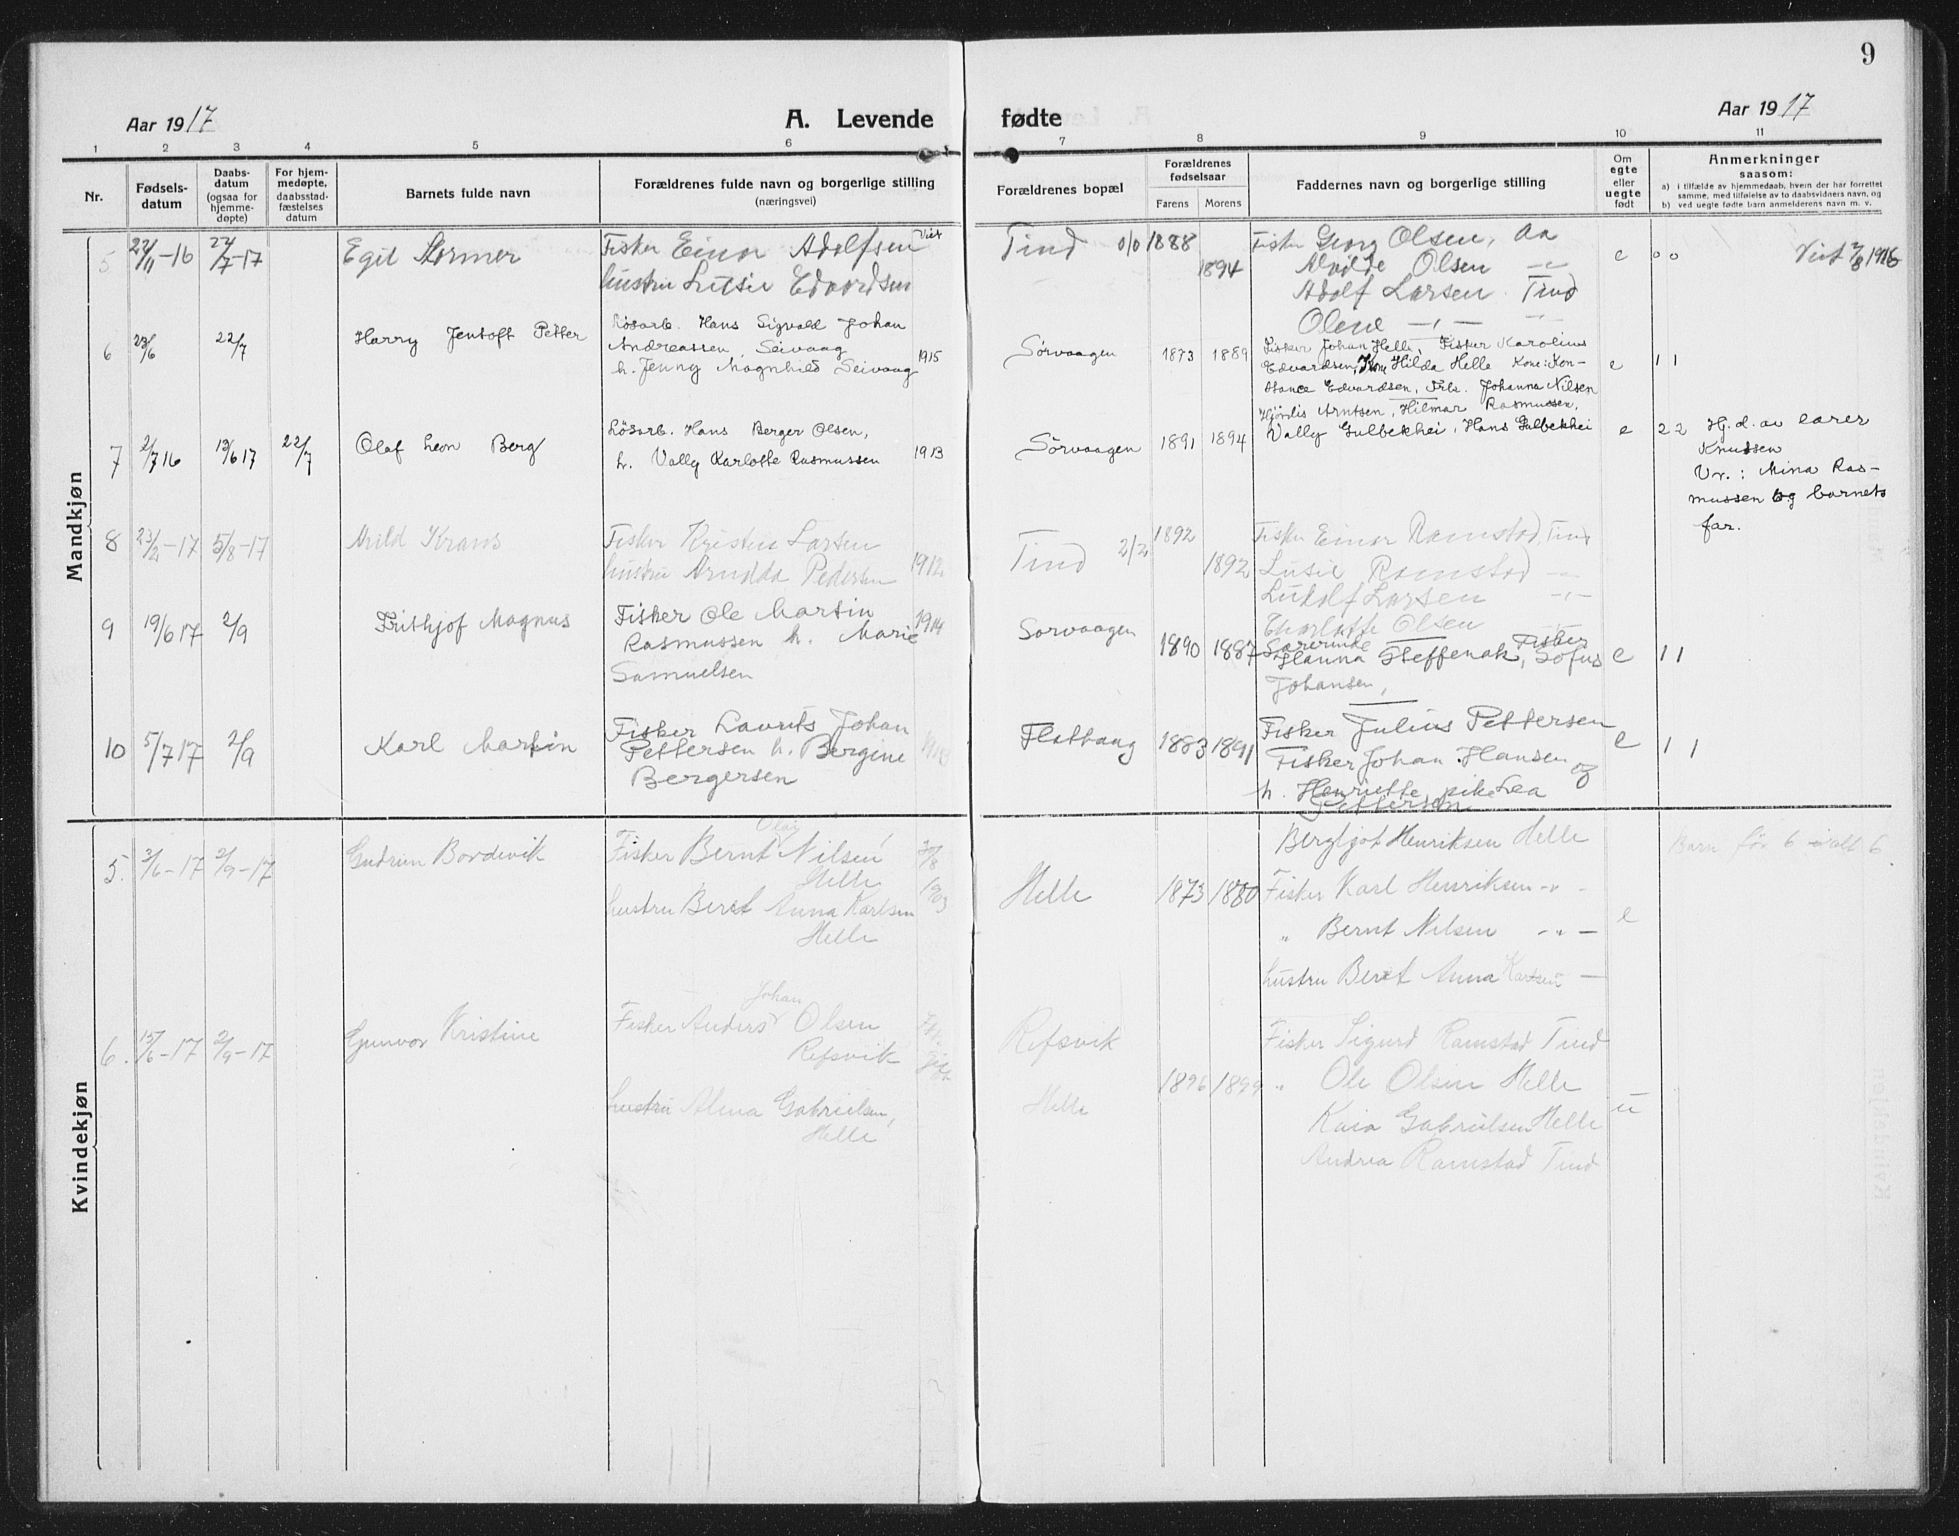 9
Aar 1917
A. Levende
fødte
Aar 1917
1 2 3 4 5 6 7 8 9 10 11
Nr.
Fødsels-
datum
Daabs-
datum
(ogsaa for
hjemme-
døpte)
For hjem-
medøpte,
daabsstad-
fæstelses
datum
Barnets fulde navn
Forældrenes fulde navn og borgerlige stilling
(næringsvei)
Forældrenes bopæl
Forældrenes
fødselsaar
Farens Morens
Faddernes navn og borgerlige stilling
Om
egte
eller
uegte
født
Anmerkninger
saasom:
a) i tilfælde av hjemmedaab, hvem der har forrettet
samme, med tilføielse av to daabsvidners navn, og
b) ved uegte fødte barn anmelderens navn m. v.
Mandkjøn
5 22/11-16 22/7-17 Egil Stormer
Fisker Einar Adolfsen Viet
hustru Lutsie Edvardsen
Tind 0/0 1888 1894
Fisker Georg Olsen, Aa
Alvilde Olsen -"-
Adolf Larsen Tind
Olene -"- -"-
e 0 0 Viet 7/8 1916
6 23/6 22/7 Harry Jentoft Petter
Løsarb. Hans Sigvald Johan
Andreassen, Seivaag 1915
h. Jenny Magnhild Seivaag
Sørvaagen 1873 1889
Fisker Johan Helle, Fisker Karolius
Edvardsen, Kone Hilda Helle Kone: Kon-
stance Edvardsen, Frk. Johanna Nilsen
e 1 1
7 2/7 16 13/6 17 22/7 Olaf Leon Berg
Løsarb. Hans Berger Olsen,
h. Vally Karlotte Rasmussen 1913
Sørvaagen 1891 1894
Hjørdis Arntsen, Hilmar Rasmussen,
Vally Gulbekhei, Hans Gulbekhei
e 2 2 Hj. d. av lærer
Knutsen
Vr.: Mina Ras-
mussen og barnets
far.
8 23/2-17 5/8-17 Arild Krans
Fisker Kristen Larsen
hustru Arndda Pedersen 1912
Tind 2/2 1892 1892
Fisker Einar Ramstad, Tind
Lusie Ramstad -"-
Ludolf Larsen -"-
Charlotte Olsen
9 19/6 17 2/9 Frithjof Magnus
Fisker Ole Martin 1914
Rasmussen h. Marie
Samuelsen
Sørvaagen 1890 1887
Hanna Steffenak, Fisker Sofus
Johansen,
e 1 1
10 5/7 17 2/9 Karl Martin
Fisker Lavrits Johan
Pettersen h. Bergine
Bergersen
Flathaug 1883 1891
Fisker Julius Pettersen
Fisker Johan Hansen og
h. Henriette pike Lea
Pettersen
e 1 1
Kvindekjøn
5. 3/6-17 2/9-17 Gudrun Bordevik
Fisker Bernt Olaf Nilsen
Helle
hustru Beret Anna Karlsen 1903
Helle
Helle 1873 1880
Bergljot Henriksen Helle
Fisker Karl Henriksen -"-
" Bernt Nilsen -"-
hustru Beret Anna Karlsen -
e Barn før 6 ialt 6
6. 15/6-17 2/9-17 Gunvor Kristine
Fisker Anders Johan Olsen
Refsvik
hustru Alma Gabrielsen,
Helle
Refsvik
Helle
1896 1899
Fisker Sigurd Ramstad Tind
" Ole Olsen Helle
Kaia Gabrielsen Helle
Andrea Ramstad Tind
u